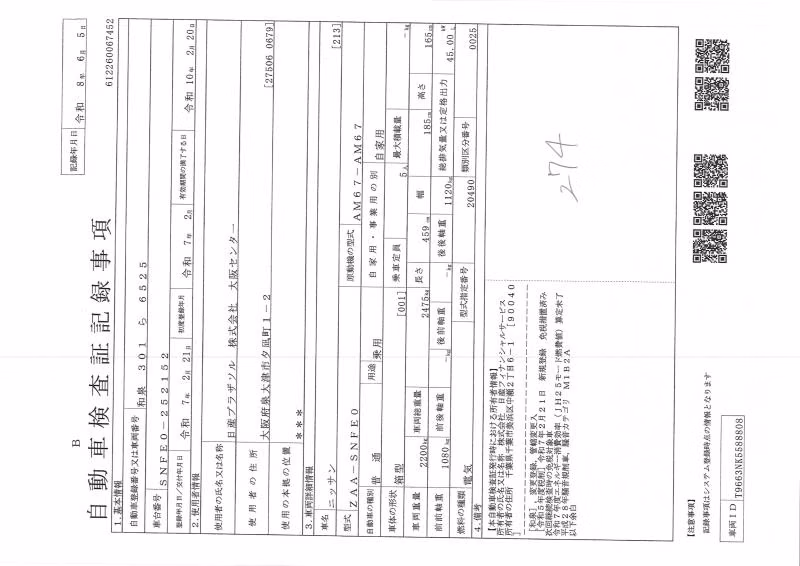 B
自動車検査証記録事項
記録年月日 令和 8年 6月 5日
612260067452
1.基本情報
自動車登録番号又は車両番号 和泉 301 ら 6525
車台番号 SNFE0-252152
登録年月日/交付年月日 令和 7年 2月 21日 初度登録年月 令和 7年 2月 有効期間の満了する日 令和 10年 2月 20日
2.使用者情報
使用者の氏名又は名称 日産プラザソル 株式会社 大阪センター
使用者の住所 大阪府泉大津市夕凪町1-2 [27506 0679]
使用の本拠の位置 ***
3.車両詳細情報
車名 ニッサン [213]
型式 ZAA-SNFE0 原動機の型式 AM67-AM67
自動車の種別 普通 用途 乗用 自家用・事業用の別 自家用
車体の形状 箱型 [001] 乗車定員 5人 最大積載量 -kg
車両重量 2200kg 車両総重量 2475kg 長さ 459cm 幅 185cm 高さ 165cm
前前軸重 1080kg 前後軸重 -kg 後前軸重 -kg 後後軸重 1120kg 総排気量又は定格出力 45.00 kW L
燃料の種類 電気 型式指定番号 20490 類別区分番号 0025
4.備考
【本自動車検査証発行時における所有者情報】
所有者の氏名又は名称 株式会社 日産フィナンシャルサービス
所有者の住所 千葉県千葉市美浜区中瀬2丁目6-1 [90040
]
[和泉] 、変更登録、管轄変更入
[令和5年度税制] 令和7年2月21日 新規登録 免税措置済み
次回継続検査時免税対象車
令和7年度エネルギー消費効率(JH25モード燃費値)算定未了
平成28年騒音規制車、騒音カテゴリ M1B2A
以下余白
274
【注意事項】
記録事項はシステム登録時点の情報となります
車両ID T9663NK5588808